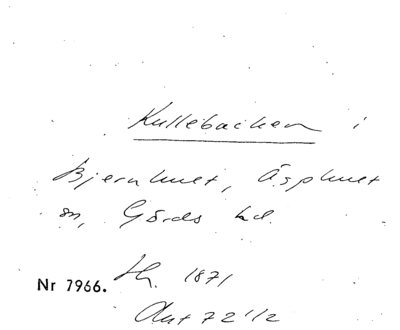 Kullebacken i
Bjernhult, Äsphult
sn, Gärds hd.
Nr 7966. Sk. 1871
Ant 72 1/2